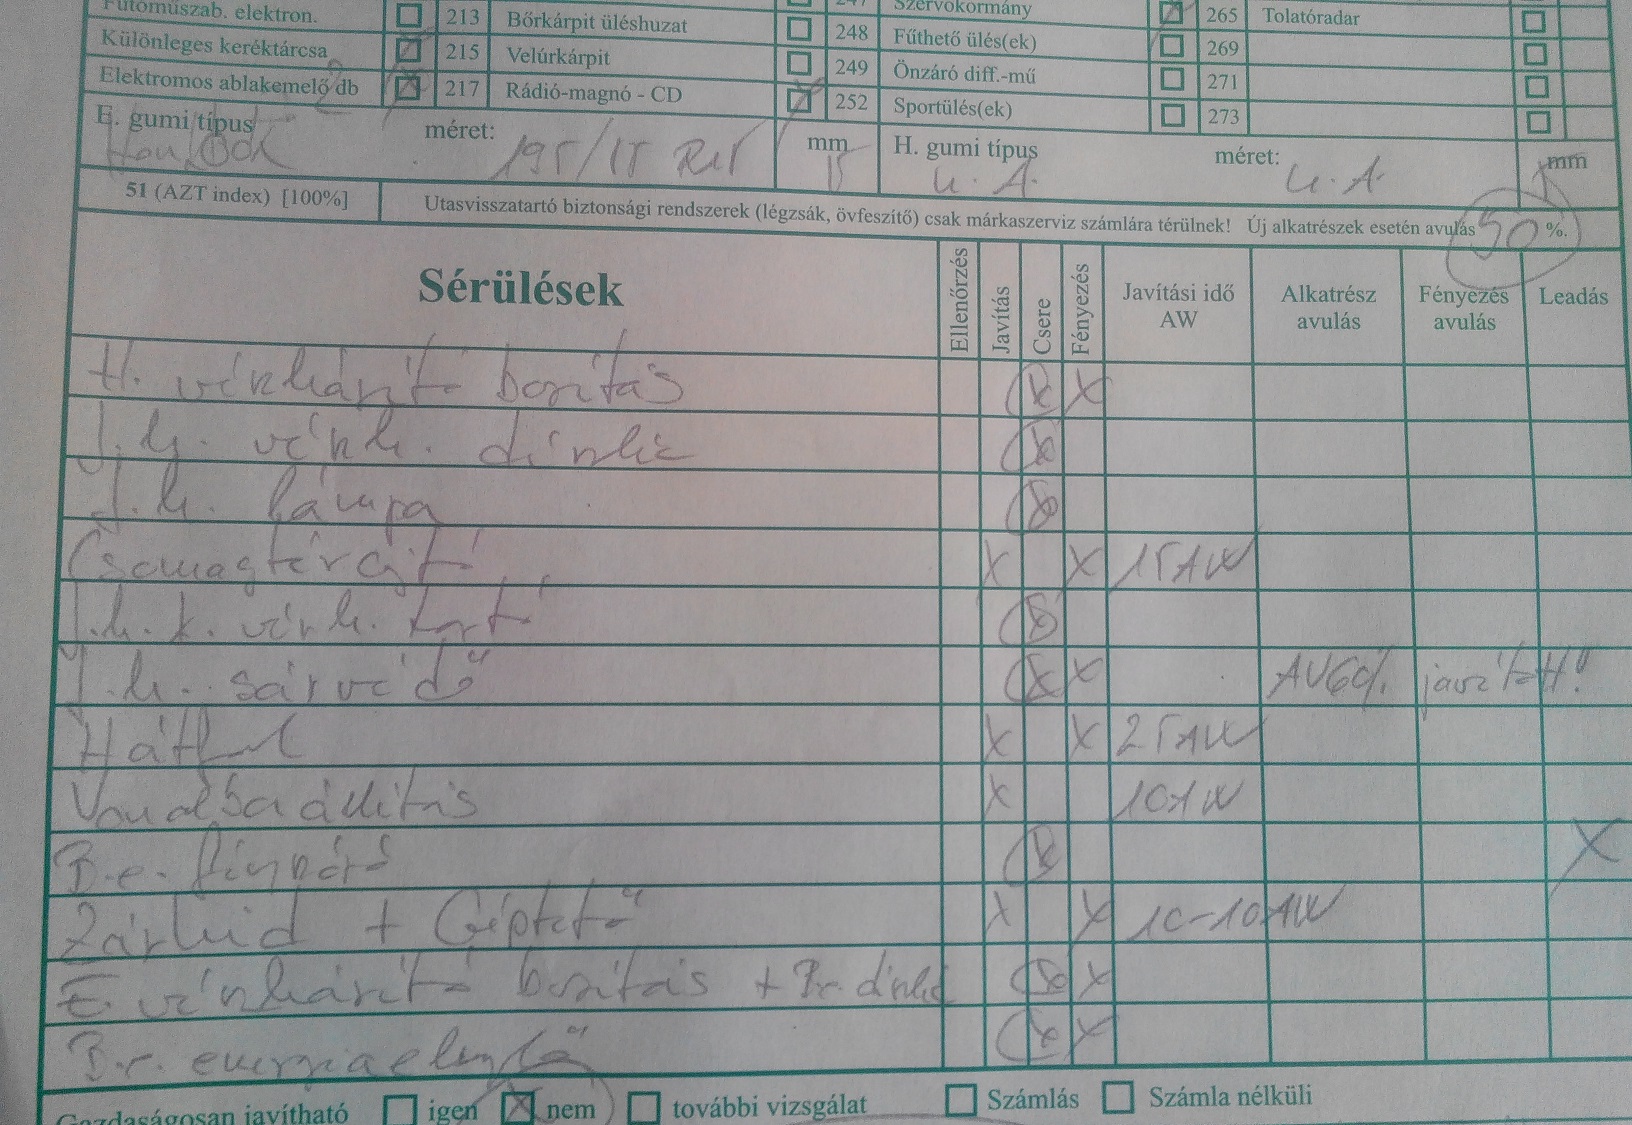 Futóműszab. elektron. 213 Bőrkárpit üléshuzat 247 Szervokormány 265 Tolatóradar
Különleges keréktárcsa 215 Velúrkárpit 248 Fűthető ülés(ek) 269
Elektromos ablakemelő db 217 Rádió-magnó - CD 249 Önzáró diff.-mű 271
252 Sportülés(ek) 273
E. gumi típus méret: 195/ mm H. gumi típus méret: mm
51 (AZT index) [100%] Utasvisszatartó biztonsági rendszerek (légzsák, övfeszítő) csak márkaszerviz számlára térülnek! Új alkatrészek esetén avulás 50 %.
Sérülések Ellenőrzés Javítás Csere Fényezés Javítási idő AW Alkatrész avulás Fényezés avulás Leadás
H. vészhárító borítás X X
J.h. lámpa X
Csomagtérajtó X X 15AW
J.h. sárvédő X X javított!
Hátfal X X 25AW
Vonalbaállítás X 10AW
B.e. X X
Zárhíd + Géptető X X 10-10AW
E. borítás + X X
B. energiaelnyelő X X
Gazdaságosan javítható igen X nem további vizsgálat Számlás Számla nélküli